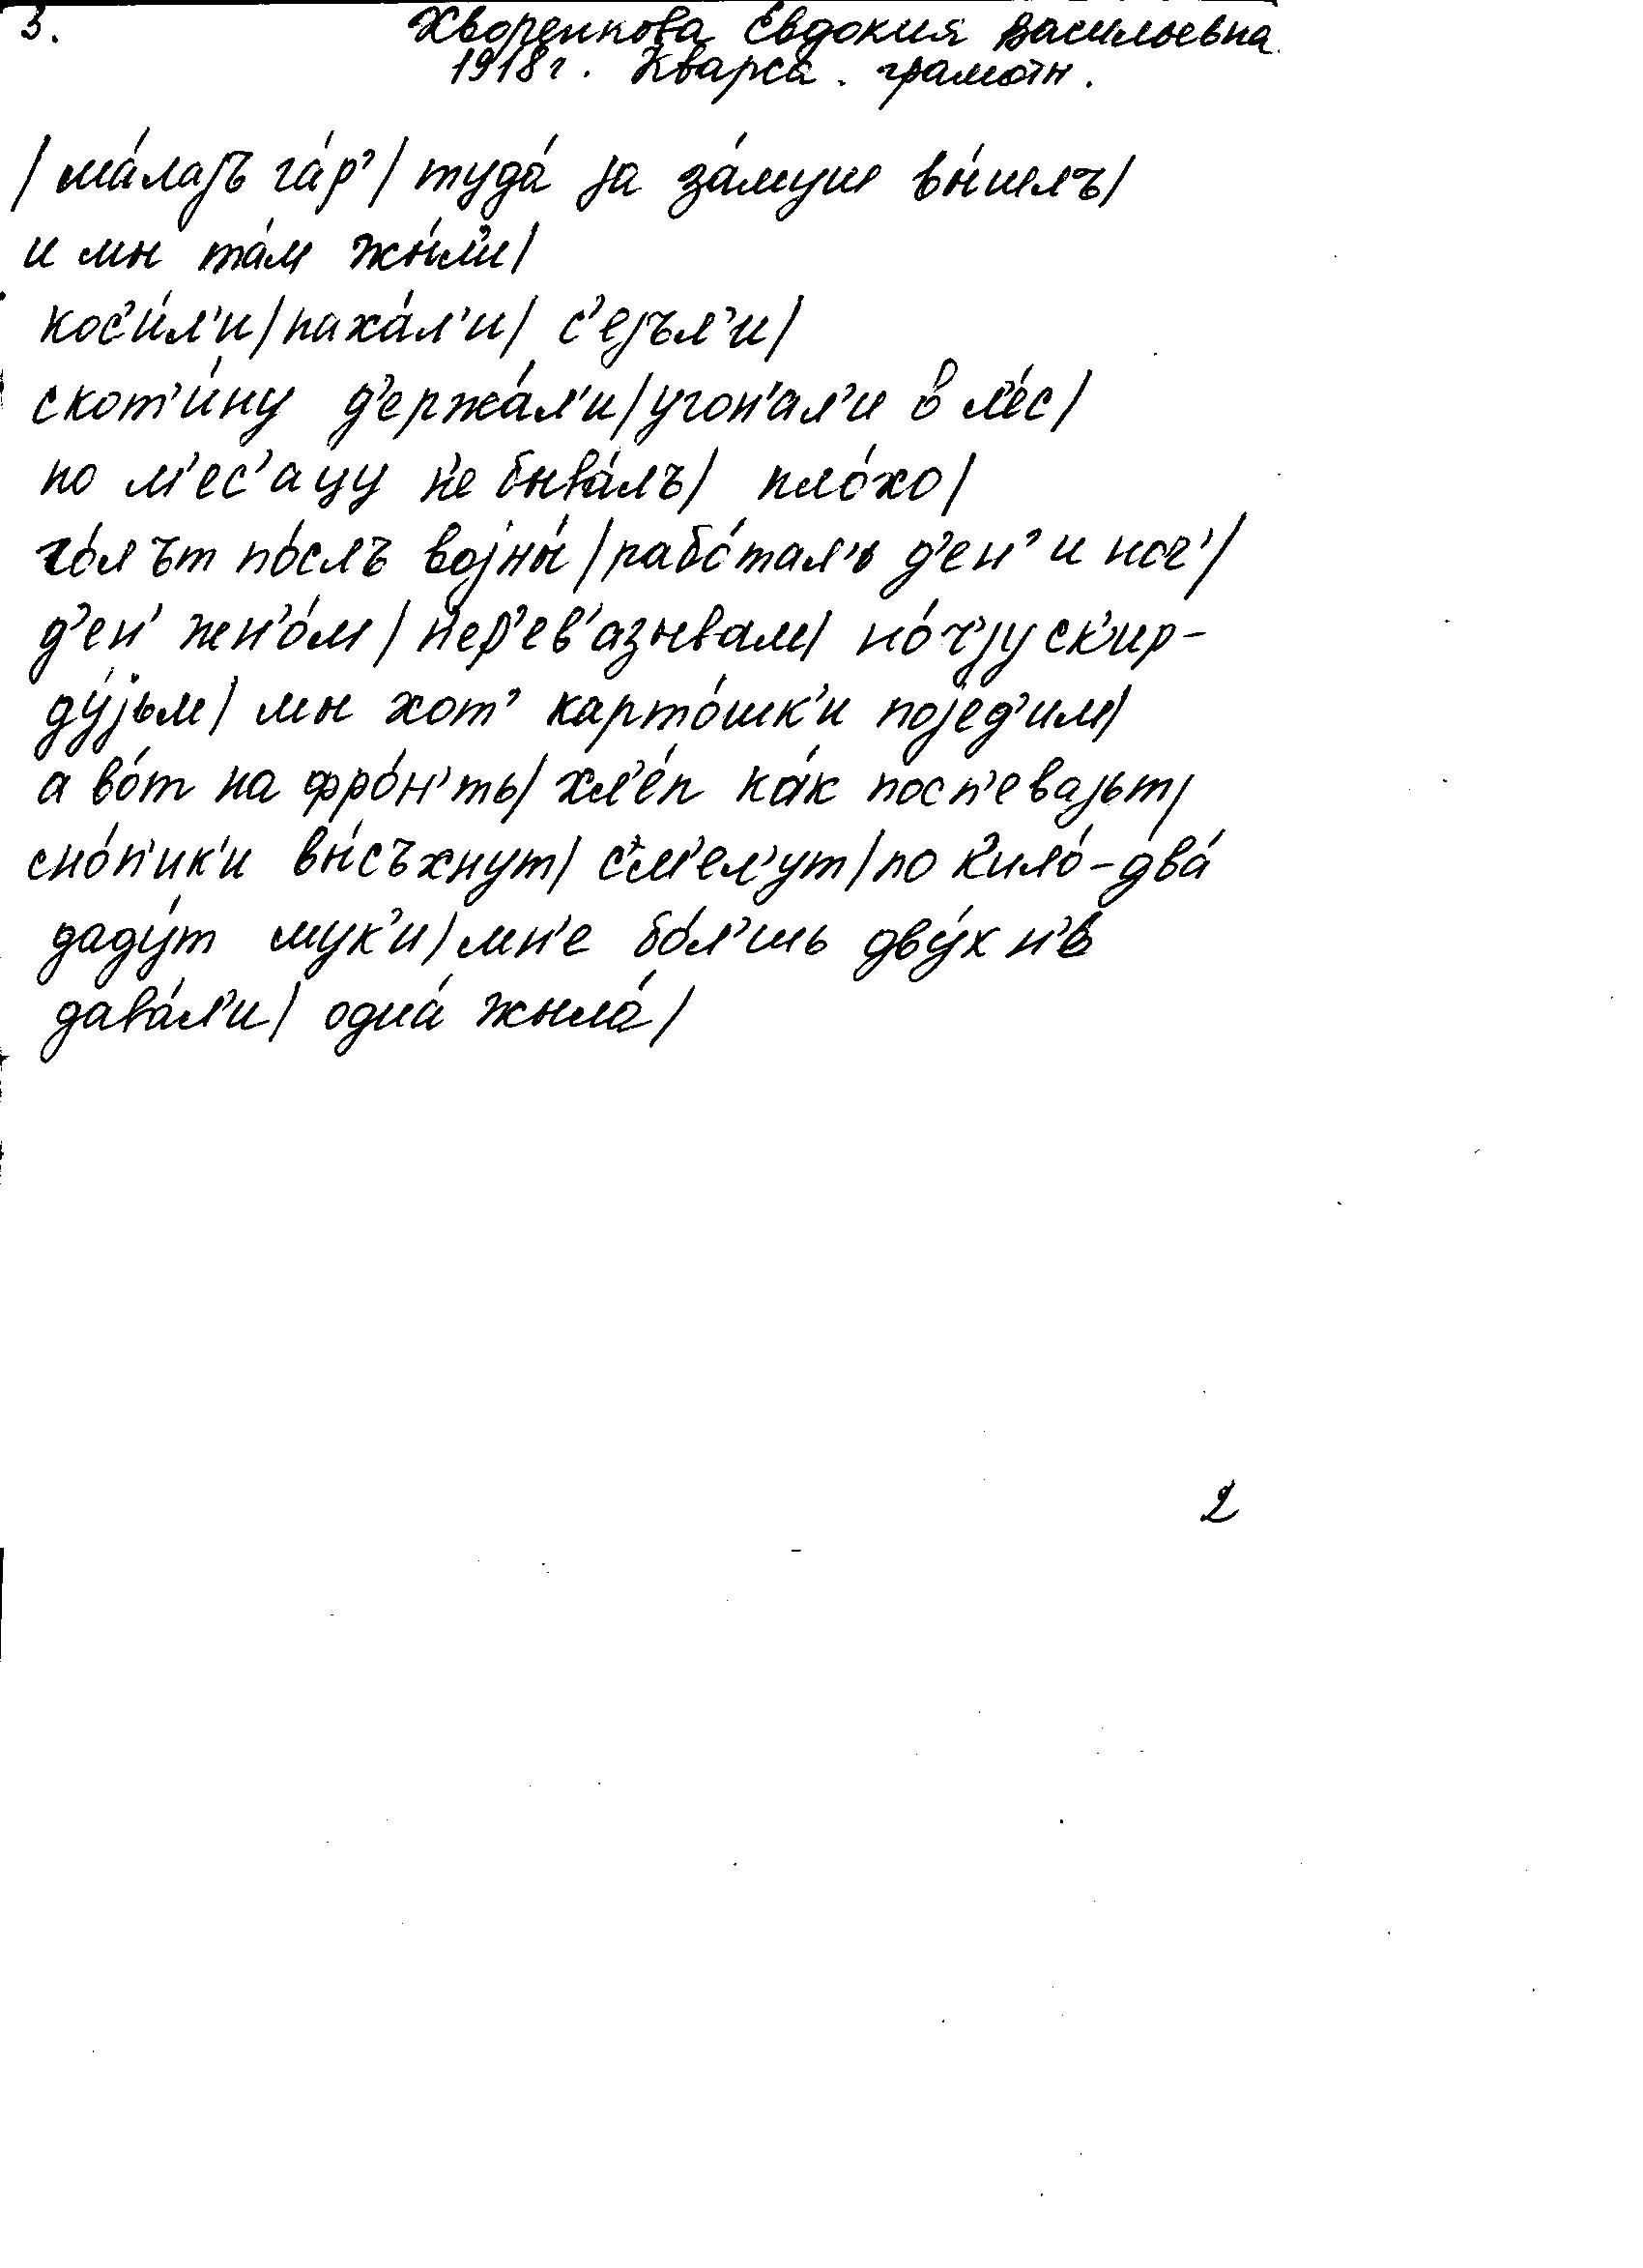 3. Хворенкова Евдокия Васильевна
1918 г. Кварса. грамотн.
| ма́лаjъ га́р' | туда́ jа за́муш вы́шлъ |
и мы та́м жы́л'и |
кос'и́л'и | паха́л'и | с'еjъл'и |
скот'и́ну д'ержа́л'и | угон'ал'и в л'е́с |
по м'ес'ацу н'е быва́лъ | пло́хо |
го́лът по́слъ воjны́ | рабо́тал'ь д'ен' и ноч' |
д'ен' жн'о́м | п'ер'ев'азывам | но́ч'jу ск'ир-
ду́jьм | мы хот' карто́шк'и поjед'им |
а во́т на фро́н'ть | хл'е́п ка́к посп'еваjьт |
сно́п'ик'и вы́съхнут | с'м'ел'ут | по к'ило́-два́
даду́т мук'и | мн'е бо́л'шь дву́х н'ь
дава́л'и | одна́ жыла́ |
2